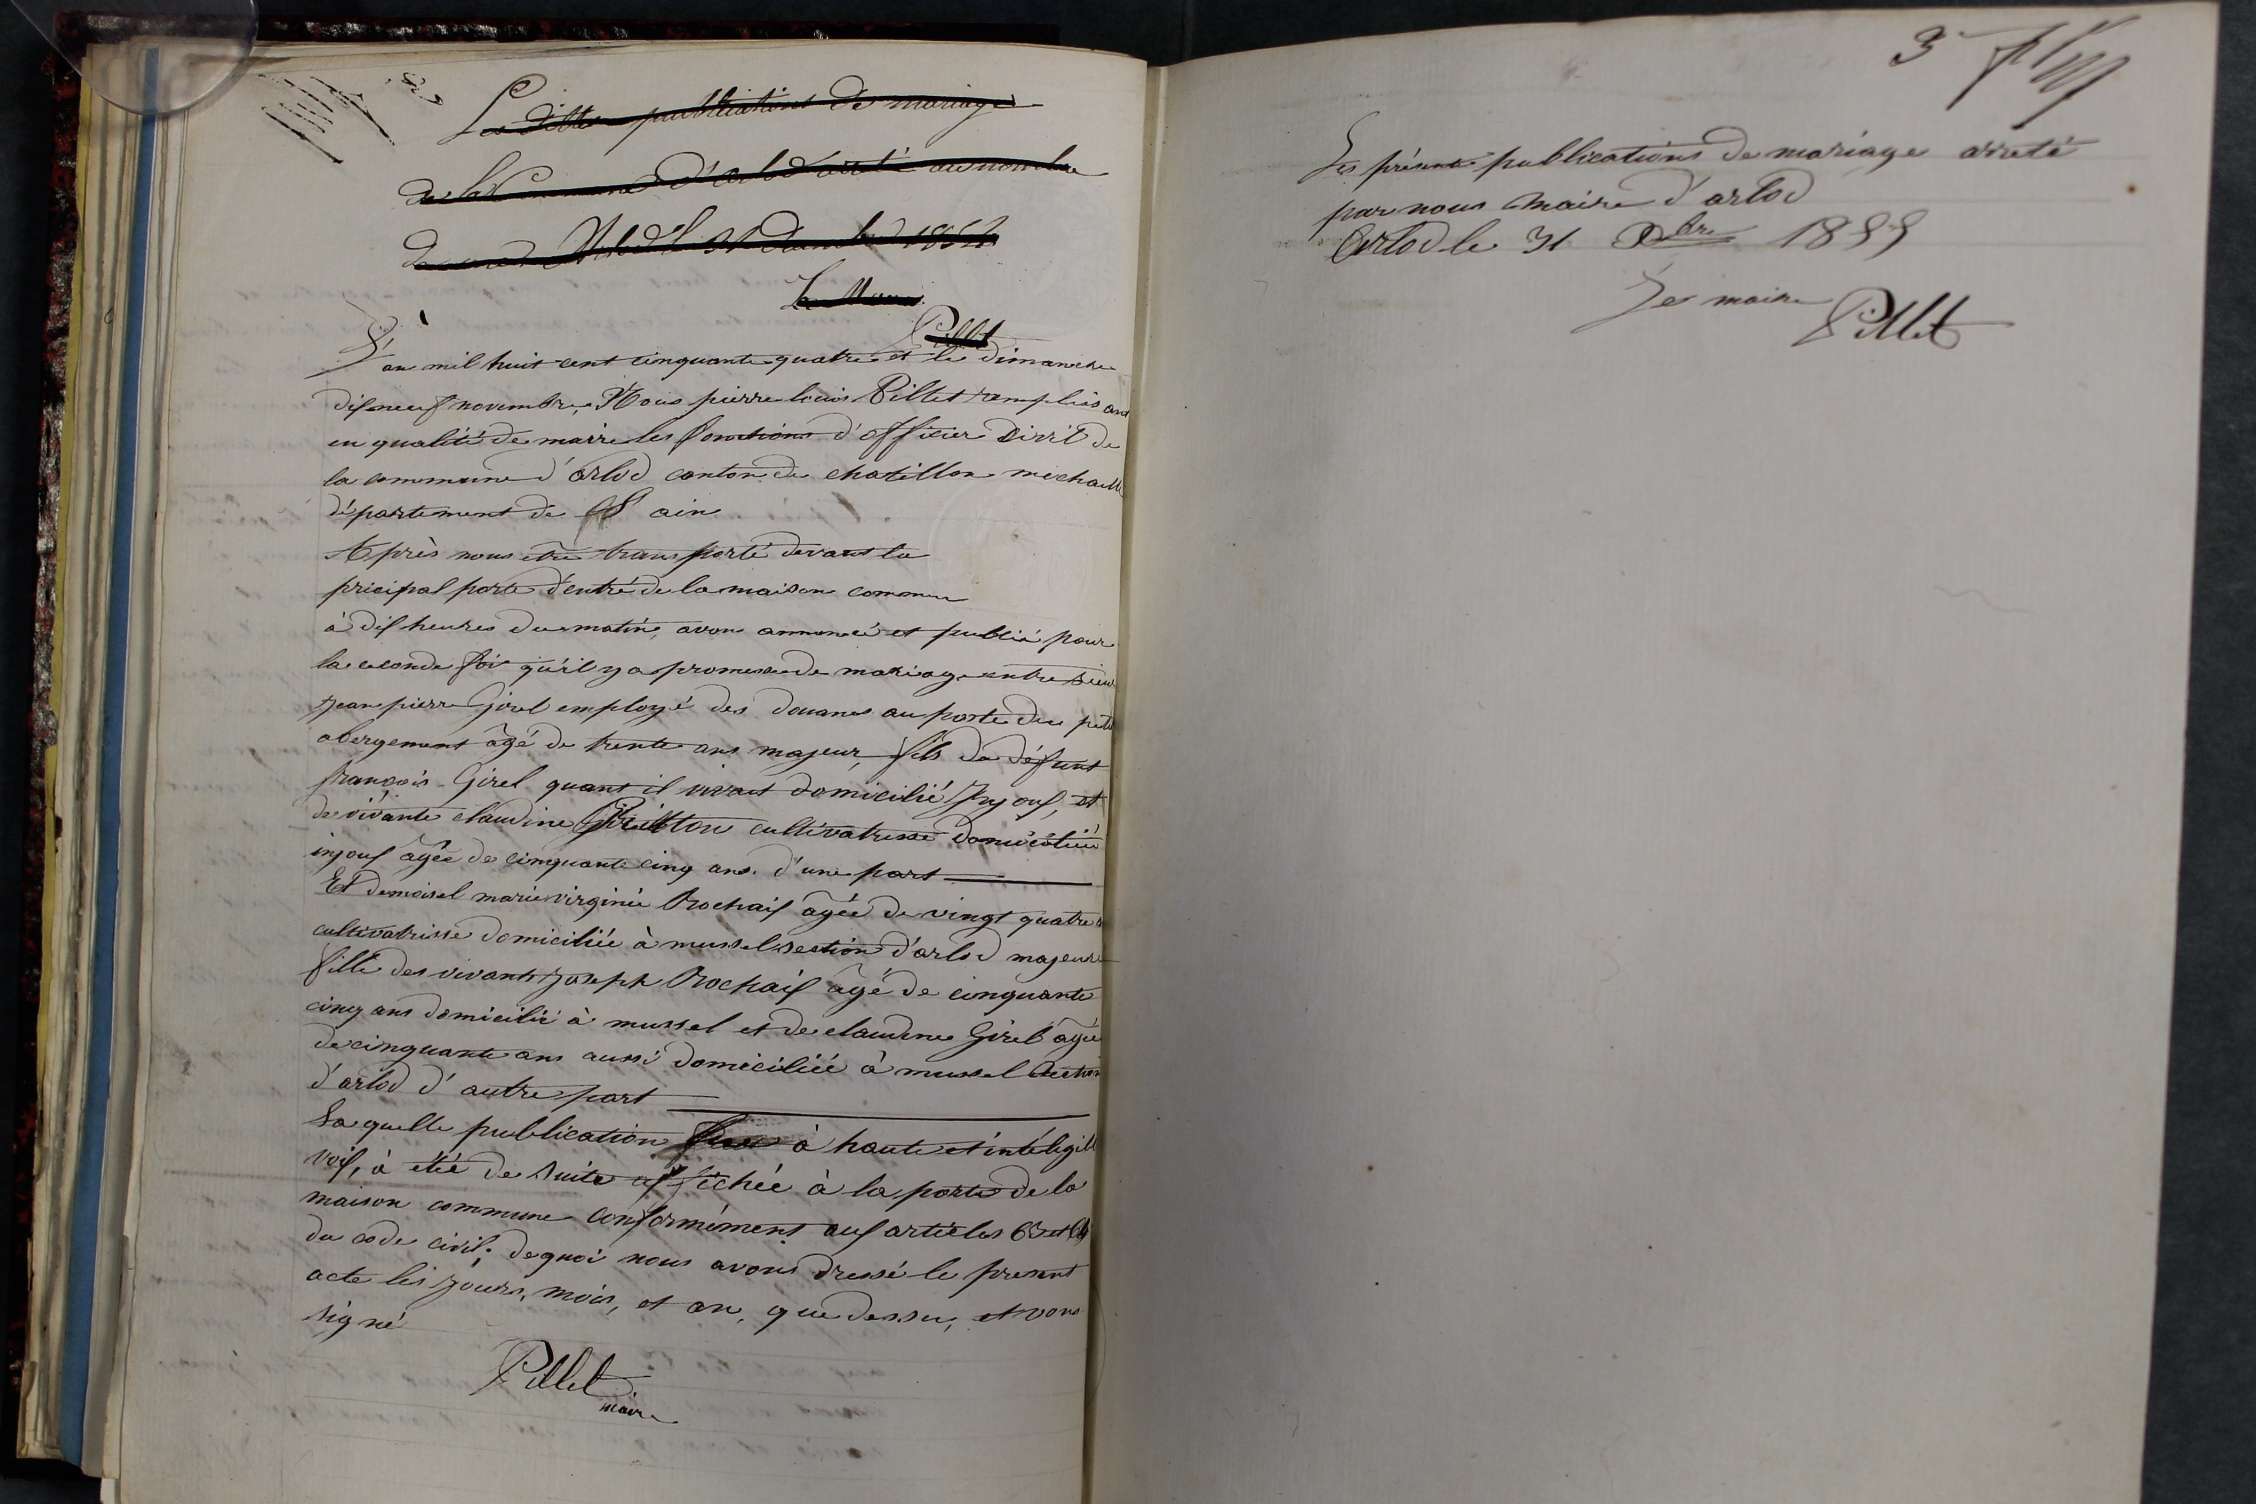 Les dittes publications de mariage
de la Commune d'arlod arrêté au nombre
de Arlod le 31 décembre 1854
Le Maire
Pillet
L'an mil huit cent cinquante quatre et le dimanche
dif neuf novembre, Nous pierre louis Pillet remplissant
en qualité de maire les fonctions d'officier Civil de
la commune d'arlod canton de chatillon michaille
département de L'ain
Après nous être transporté devant la
pricipal porte d'entré de la maison commune
à dif heures du matin, avons annoncé et publié pour
la seconde fois qu'il y a promesse de mariage entre sieur
jean pierre Girel employé des douanes au poste du petit
abergement âgé de trente ans majeur, fils de défunt
françois Girel quant il vivait domicilié Injouf, et
de vivante claudine cultivatrisse domiciliée
injouf âgée de cinquante cinq ans. d'une part
Et demoisel marie virginie Rochaif âgée de vingt quatre
cultivatrisse domiciliée à mussel section d'arlod majeure
fille des vivants joseph Rochaif âgé de cinquante
cinq ans domicilié à mussel et de claudine Girel âgée
de cinquante ans aussi domiciliée à mussel section
d'arlod d'autre part
La quelle publication à haute et intéligible
voif, à été de suite affichée à la porte de la
maison commune conformément auf articles 63 et 64
du code civil; de quoi nous avons dressé le present
acte les jours, mois, et an, que dessu, et vons
signé
Pillet
maire
3
Les présente publications de mariage arreté
par nous maire d'arlod
Arlod le 31 Xbre 1855
Le maire
Pillet